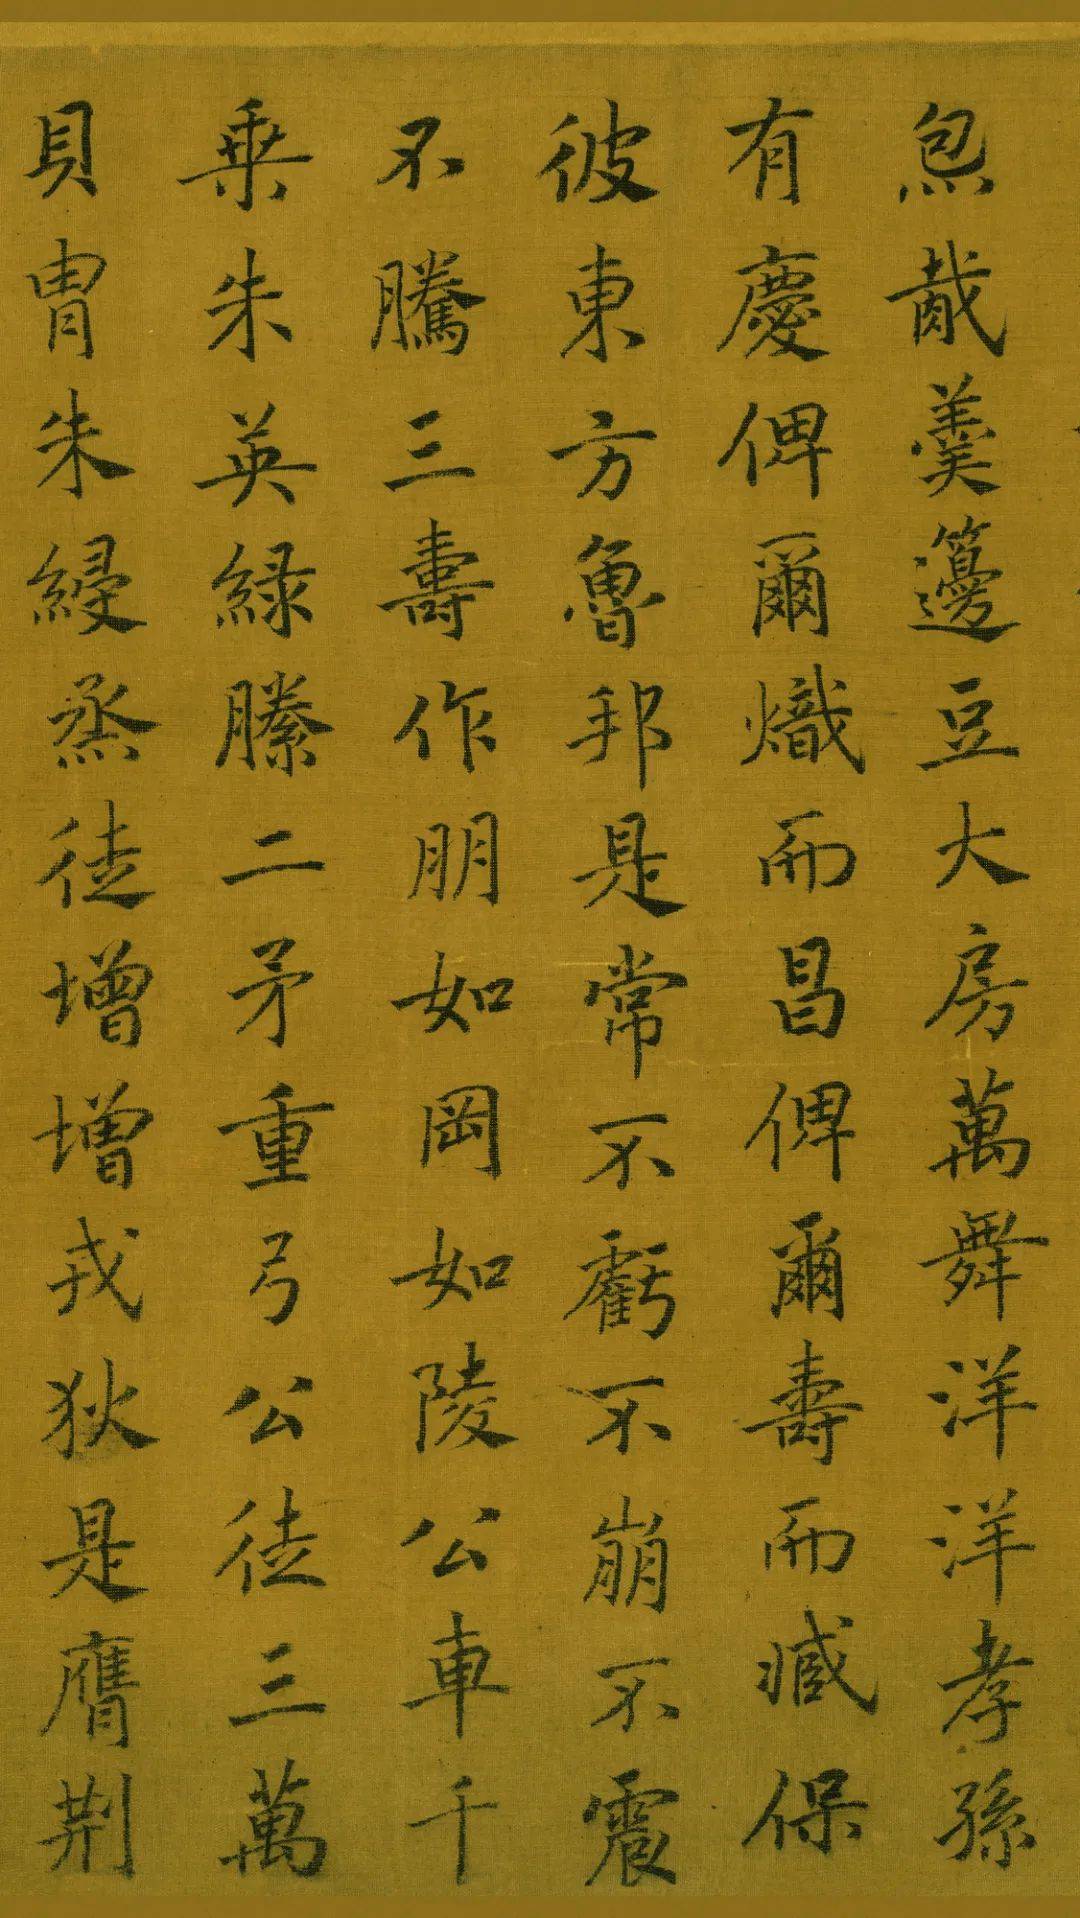 炰胾羹籩豆大房萬舞洋洋孝孫
有慶俾爾熾而昌俾爾壽而臧保
彼東方魯邦是常不虧不崩不震
不騰三壽作朋如岡如陵公車千
乗朱英緑縢二矛重弓公徒三萬
貝冑朱綅烝徒增增戎狄是膺荆